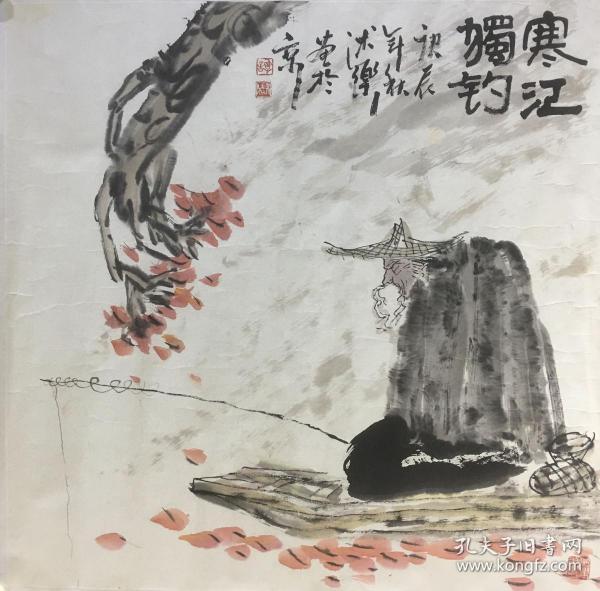 寒江
獨钓
庚辰
年秋
画於
京
孔夫子旧书网
www.kongfz.com